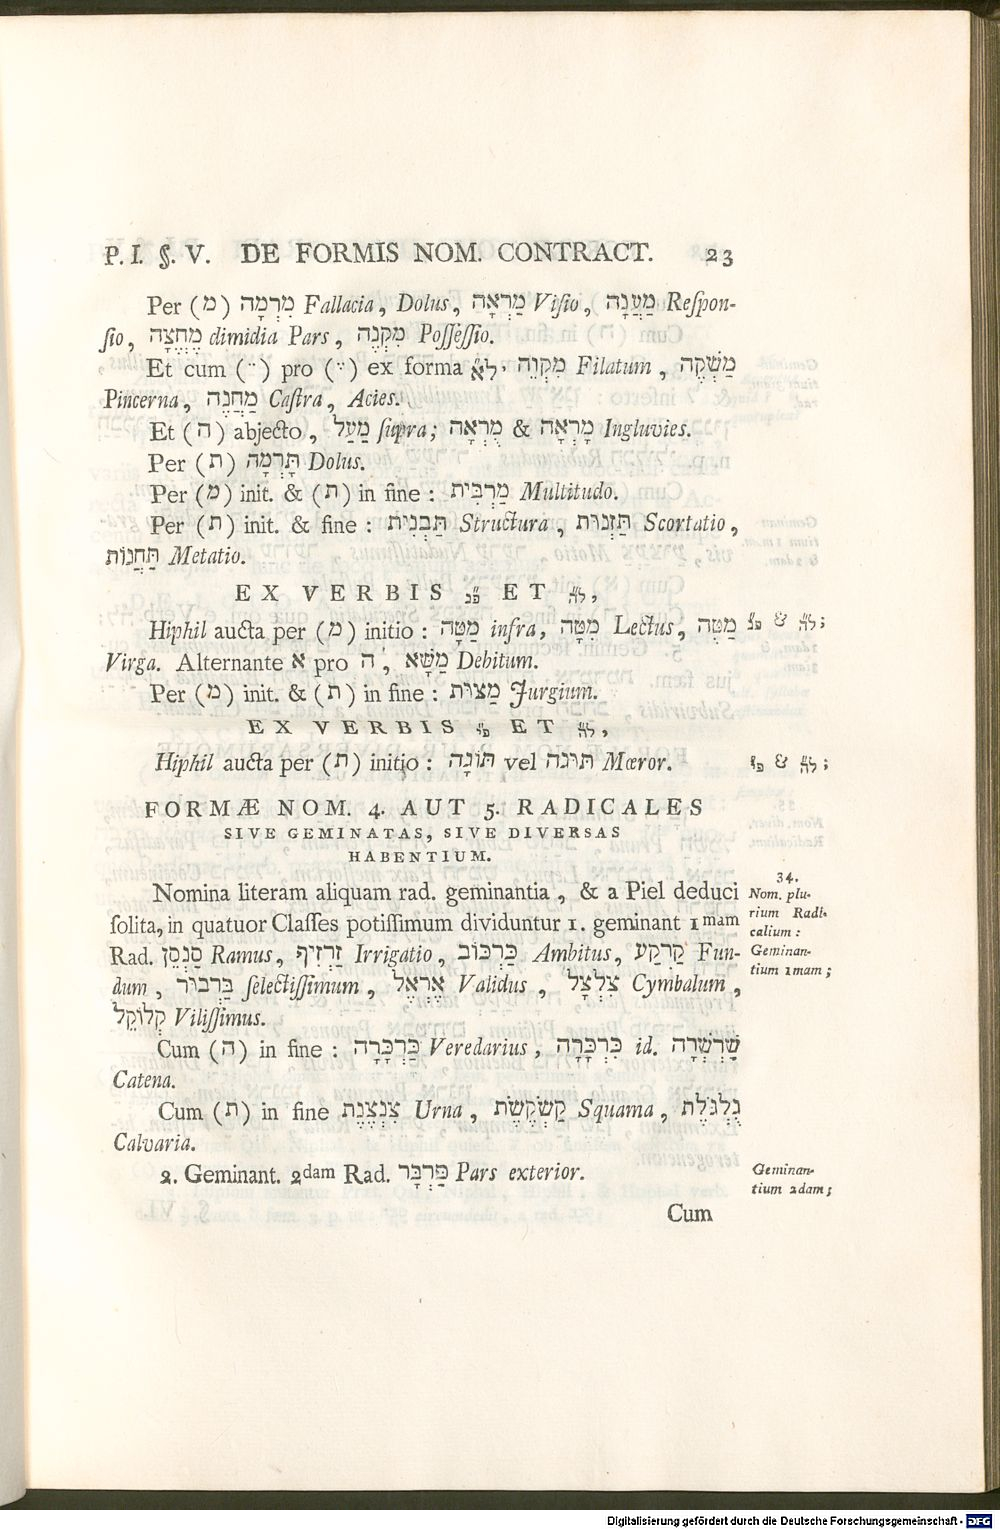 P. I. §. V. DE FORMIS NOM. CONTRACT. 23
Per (מ) מִרְמָה Fallacia, Dolus, מַרְאָה Visio, מַעֲנֶה Respon-
sio, מֶחֱצָה dimidia Pars, מִקְנֶה Possessio.
Et cum (¨) pro (ֶ) ex forma מִקְוֵה Filatum, מַשְׁקֶה
Pincerna, מַחֲנֶה Castra, Acies.
Et (ה) abjecto, מַעַל supra; מֻרְאָה & מָרְאָה Ingluvies.
Per (ת) תָּרְמָה Dolus.
Per (מ) init. & (ת) in fine: מַרְבִּית Multitudo.
Per (ת) init. & fine: תַּבְנִית Structura, תַּזְנוּת Scortatio,
תַּחֲנוֹת Metatio.
EX VERBIS ET
Hiphil aucta per (מ) initio: מַטָּה infra, מִטָּה Lectus, מַטֶּה
Virga. Alternante א pro ה, מַשָּׁא Debitum.
Per (מ) init. & (ת) in fine: מַצּוּת Jurgium.
EX VERBIS ET
Hiphil aucta per (ת) initio: תּוֹגָה vel תּוּגָה Mœror.
FORMÆ NOM. 4. AUT 5. RADICALES
SIVE GEMINATAS, SIVE DIVERSAS
HABENTIUM.
Nomina literam aliquam rad. geminantia, & a Piel deduci
solita, in quatuor Classes potissimum dividuntur 1. geminant 1mam
Rad. סַנְסֵן Ramus, זַרְזִיף Irrigatio, כַּרְכּוֹב Ambitus, קַרְקַע Fun-
dum, בַּרְבּוּר selectissimum, אֶרְאֵל Validus, צִלְצָל Cymbalum,
קְלוֹקֵל Vilissimus.
Cum (ה) in fine: כַּרְכָּרָה Veredarius, כִּרְכָּרָה id. שַׁרְשְׁרָה
Catena.
Cum (ת) in fine צִנְצֶנֶת Urna, קַשְׂקֶשֶׂת Squama, גֻּלְגֹּלֶת
Calvaria.
2. Geminant. 2dam Rad. פַּרְבָּר Pars exterior.
Cum
34.
Nom. plu-
rium Radi-
calium:
Geminan-
tium 1mam;
Geminan-
tium 2dam;
Digitalisierung gefördert durch die Deutsche Forschungsgemeinschaft - DFG